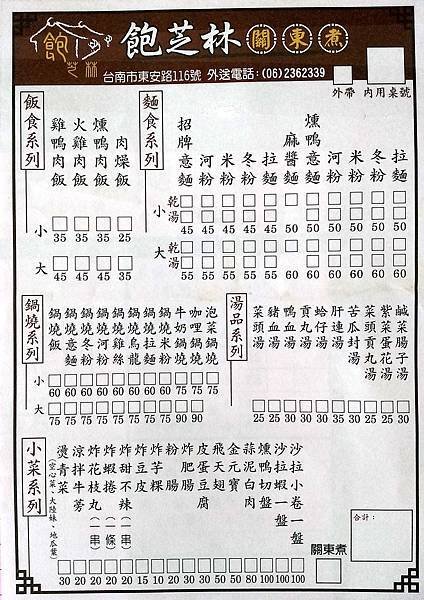 飽芝林
飽芝林 關東煮
台南市東安路116號 外送電話:(06)2362339
外帶 內用桌號
飯食系列
雞鴨肉飯
火雞肉飯
燻鴨肉飯
肉燥飯
小 35 35 35 25
大 45 45 45 35
麵食系列
招牌意麵
河粉
米粉
冬粉
拉麵
麻醬麵
燻鴨意麵
河粉
米粉
冬粉
拉麵
小 乾 湯 45 45 45 45 45 50 50 50 50 50 50
大 乾 湯 55 55 55 55 55 60 60 60 60 60 60
鍋燒系列
鍋燒飯
鍋燒意麵
鍋燒冬粉
鍋燒河粉
鍋燒雞絲
鍋燒烏龍
鍋燒拉麵
鍋燒米粉
牛奶鍋燒
咖哩鍋燒
泡菜鍋燒
小 60 60 60 60 60 60 60 60 75 75
大 75 75 75 75 75 75 75 75 90 90
湯品系列
菜頭湯
豬血湯
鴨血湯
貢丸湯
蛤仔湯
肝連湯
苦瓜封湯
菜頭貢丸湯
紫菜蛋花湯
鹹菜腸子湯
25 25 30 30 30 30 30 25 25 30
小菜系列
燙青菜
(空心菜、大陸妹、地瓜葉)
涼拌牛蒡
炸花枝丸(一串)
炸蝦捲(一條)
炸甜不辣(一串)
炸豆皮
炸芋粿
粉腸
炸肥腸
皮蛋豆腐
飛天翅
金元寶
蒜泥白肉
燻鴨切盤
沙拉蝦一盤
沙拉小卷一盤
30 20 20 20 20 15 10 20 30 30 50 50 50 80 100 100
關東煮
合計: